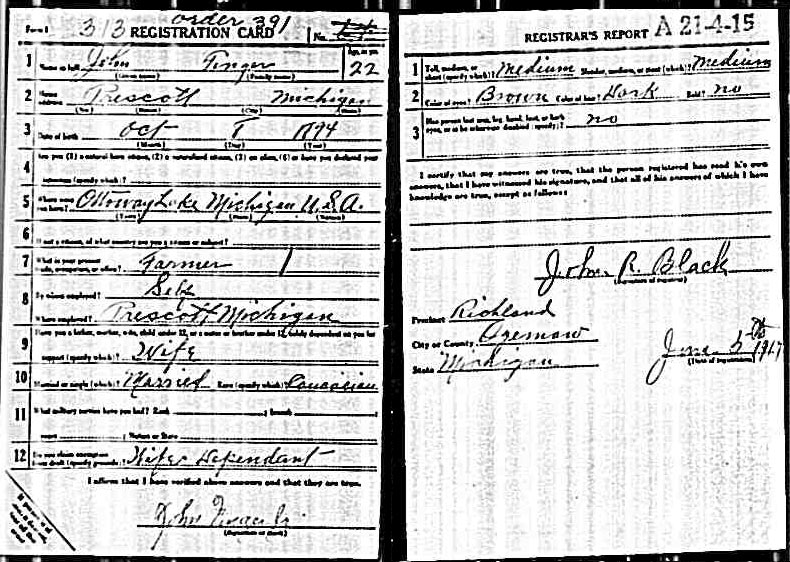 order 391
Form 1 313 REGISTRATION CARD No.
1 Name in full John Finger Age, in yrs. 22
(Given name) (Family name)
2 Home address Prescott Michigan
(No.) (Street) (City) (State)
3 Date of birth Oct
(Month) (Day) (Year)
4 Are you (1) a natural born citizen, (2) a naturalized citizen, (3) an alien, (4) or have you declared your
intention (specify which)?
5 Where were you born? Ottoway Lake Michigan U.S.A.
(Town) (State) (Nation)
6 If not a citizen, of what country are you a citizen or subject?
7 What is your present trade, occupation, or office? Farmer
8 By whom employed? Self
Where employed? Prescott Michigan
9 Have you a father, mother, wife, child under 12, or a sister or brother under 12, solely dependent on you for
support (specify which)? Wife
10 Married or single (which)? Married Race (specify which)? Caucasian
11 What military service have you had? Rank ; branch ;
years ; Nation or State
12 Do you claim exemption from draft (specify grounds)? Wife Dependant
I affirm that I have verified above answers and that they are true.
John
(Signature or mark)
REGISTRAR'S REPORT A 21-4-15
1 Tall, medium, or short (specify which)? Medium Slender, medium, or stout (which)? Medium
2 Color of eyes? Brown Color of hair? Dark Bald? No
3 Has person lost arm, leg, hand, foot, or both eyes, or is he otherwise disabled (specify)? no
I certify that my answers are true, that the person registered has read his own
answers, that I have witnessed his signature, and that all of his answers of which I have
knowledge are true, except as follows:
John R. Black
(Signature of registrar)
Precinct Richland
City or County Ogemaw
State Michigan June 5th 1917
(Date of registration)